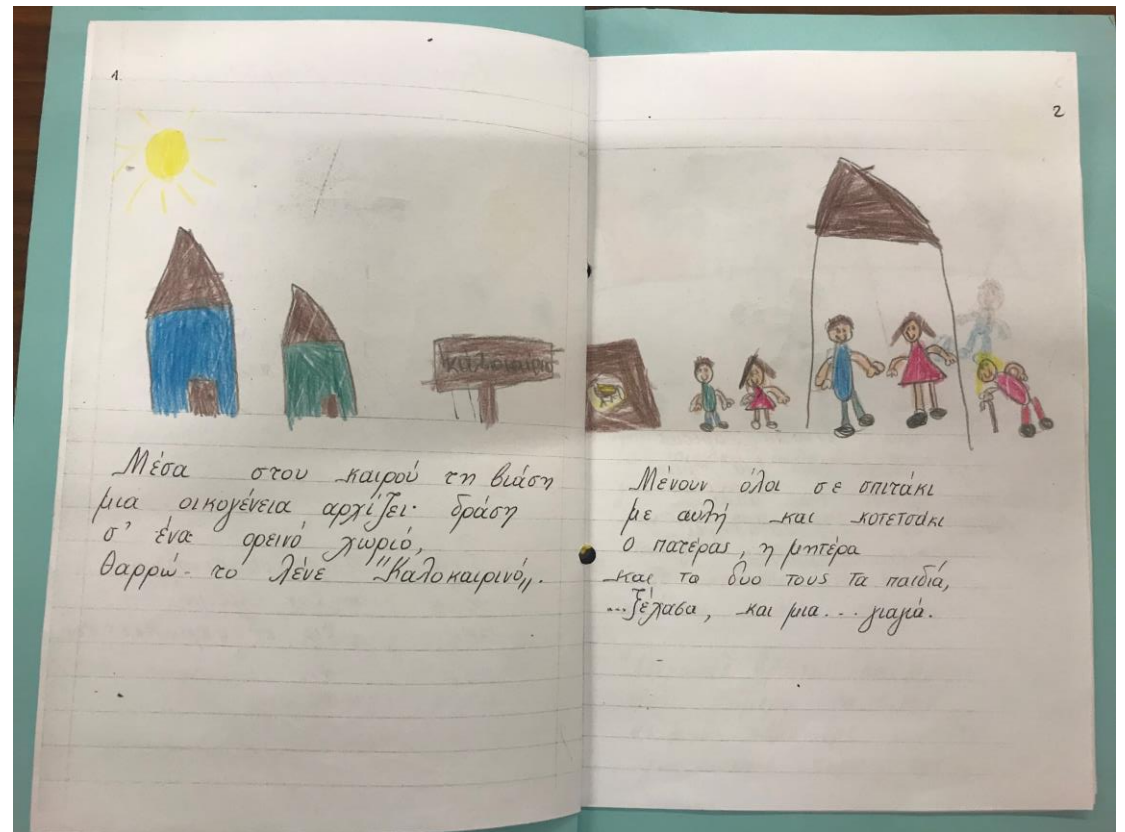 1.
Καλοκαιρινό
Μέσα στου καιρού τη βιάση
μια οικογένεια αρχίζει δράση
σ' ένα ορεινό χωριό,
θαρρώ το λένε "Καλοκαιρινό".
2
Μένουν όλοι σε σπιτάκι
με αυλή και κοτετσάκι
ο πατέρας, η μητέρα
και τα δυο τους τα παιδιά,
...ξέχασα, και μια... γιαγιά.